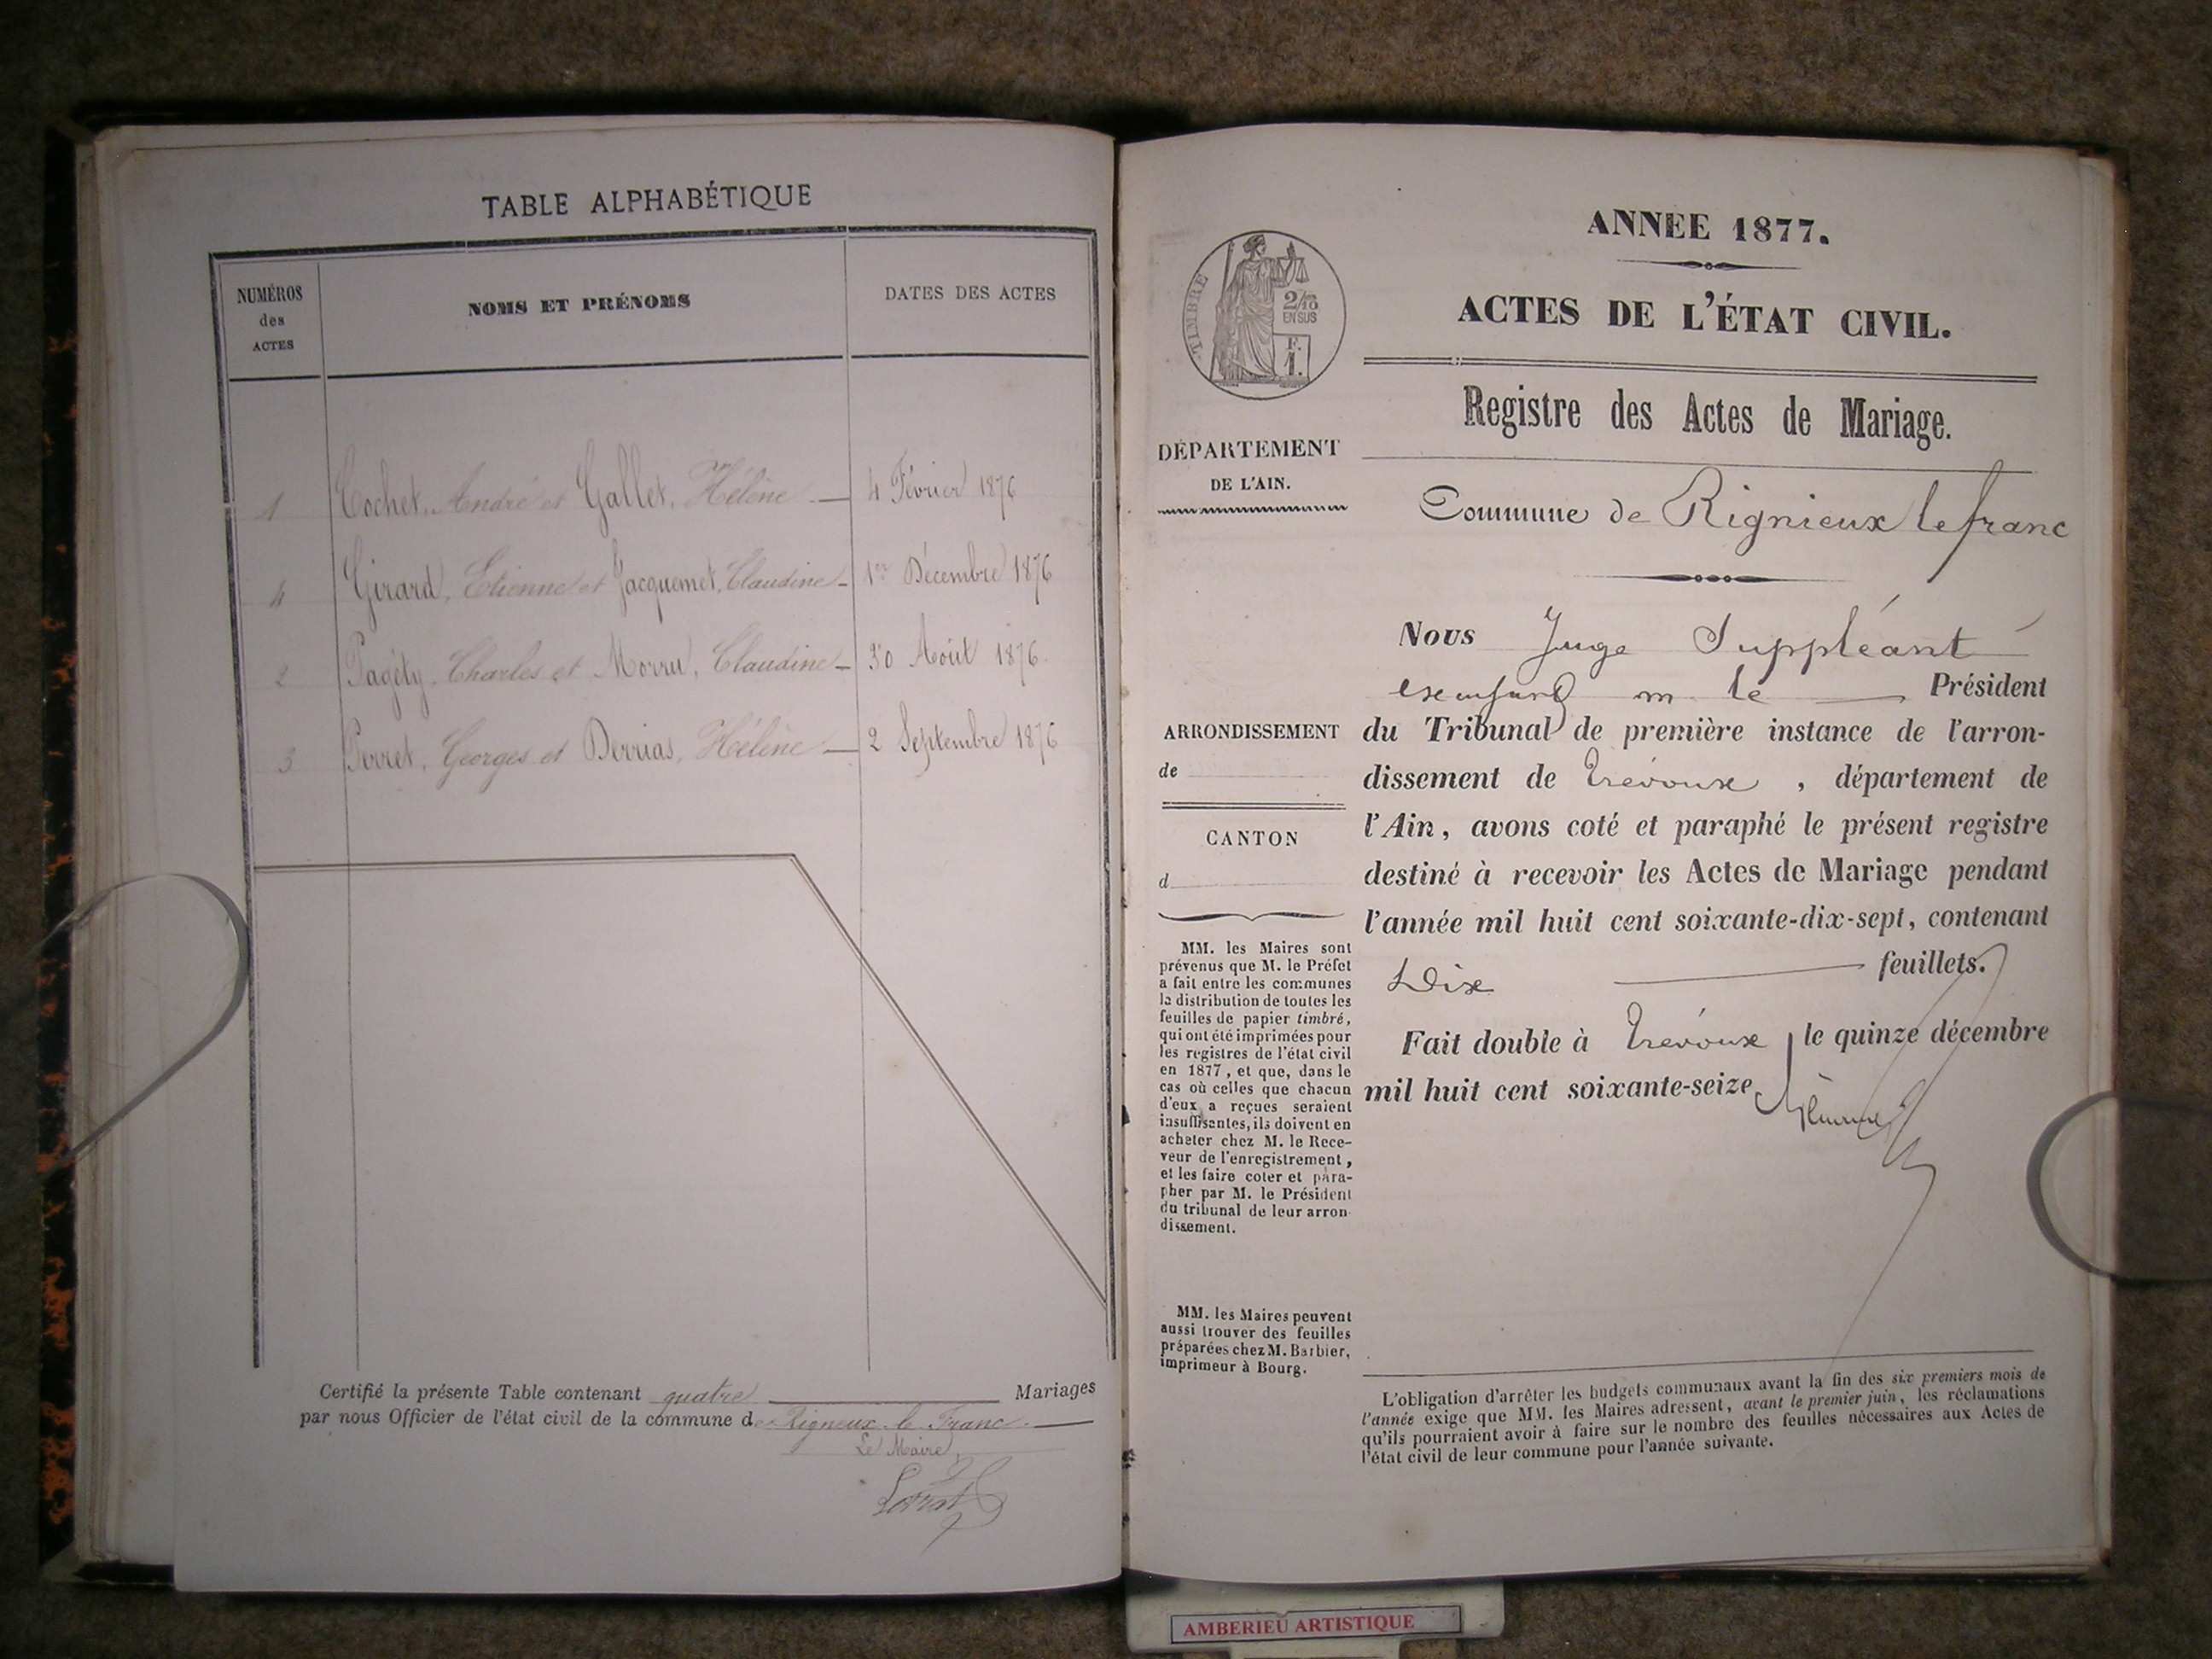 TABLE ALPHABÉTIQUE
NUMÉROS
des
ACTES
NOMS ET PRÉNOMS
DATES DES ACTES
1 Cochet, André et Gallet, Hélène — 4 Février 1876
4 Girard, Etienne et Jacquemet, Claudine — 1er Décembre 1876
2 Charles et Claudine — 30 Août 1876
3 Perret, Georges et Hélène — 2 Septembre 1876
Certifié la présente Table contenant quatre Mariages
par nous Officier de l'état civil de la commune de Rigneux le Franc
Le Maire,
ANNÉE 1877.
ACTES DE L'ÉTAT CIVIL.
TIMBRE
2/10
EN SUS
F.
1.
Registre des Actes de Mariage.
DÉPARTEMENT
DE L'AIN.
Commune de Rignieux le franc
Nous Juge Suppléant
m le Président
ARRONDISSEMENT
de
CANTON
d
du Tribunal de première instance de l'arron-
dissement de Trévoux, département de
l'Ain, avons coté et paraphé le présent registre
destiné à recevoir les Actes de Mariage pendant
l'année mil huit cent soixante-dix-sept, contenant
Dix feuillets.
Fait double à Trévoux le quinze décembre
mil huit cent soixante-seize
MM. les Maires sont
prévenus que M. le Préfet
a fait entre les communes
la distribution de toutes les
feuilles de papier timbré,
qui ont été imprimées pour
les registres de l'état civil
en 1877, et que, dans le
cas où celles que chacun
d'eux a reçues seraient
insuffisantes, ils doivent en
acheter chez M. le Rece-
veur de l'enregistrement,
et les faire coter et para-
pher par M. le Président
du tribunal de leur arron-
dissement.
MM. les Maires peuvent
aussi trouver des feuilles
préparées chez M. Barbier,
imprimeur à Bourg.
L'obligation d'arrêter les budgets communaux avant la fin des six premiers mois de
l'année exige que MM. les Maires adressent, avant le premier juin, les réclamations
qu'ils pourraient avoir à faire sur le nombre des feuilles nécessaires aux Actes de
l'état civil de leur commune pour l'année suivante.
AMBERIEU ARTISTIQUE